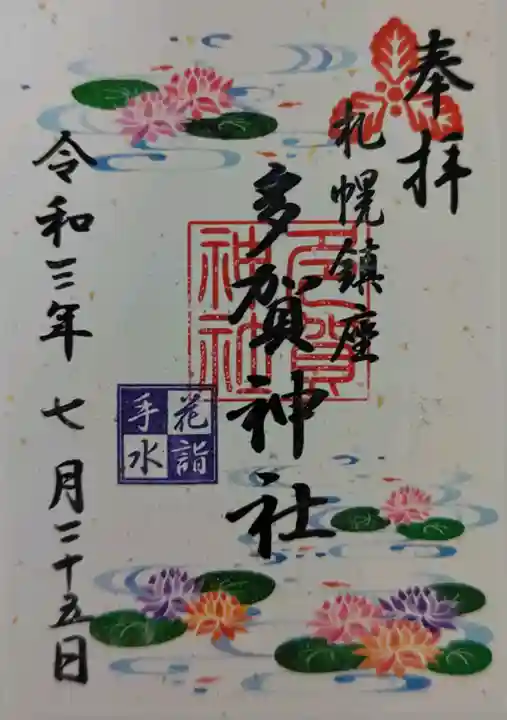 奉拝
札幌鎮座
多賀神社
多賀神社
花詣
手水
令和三年七月二十五日